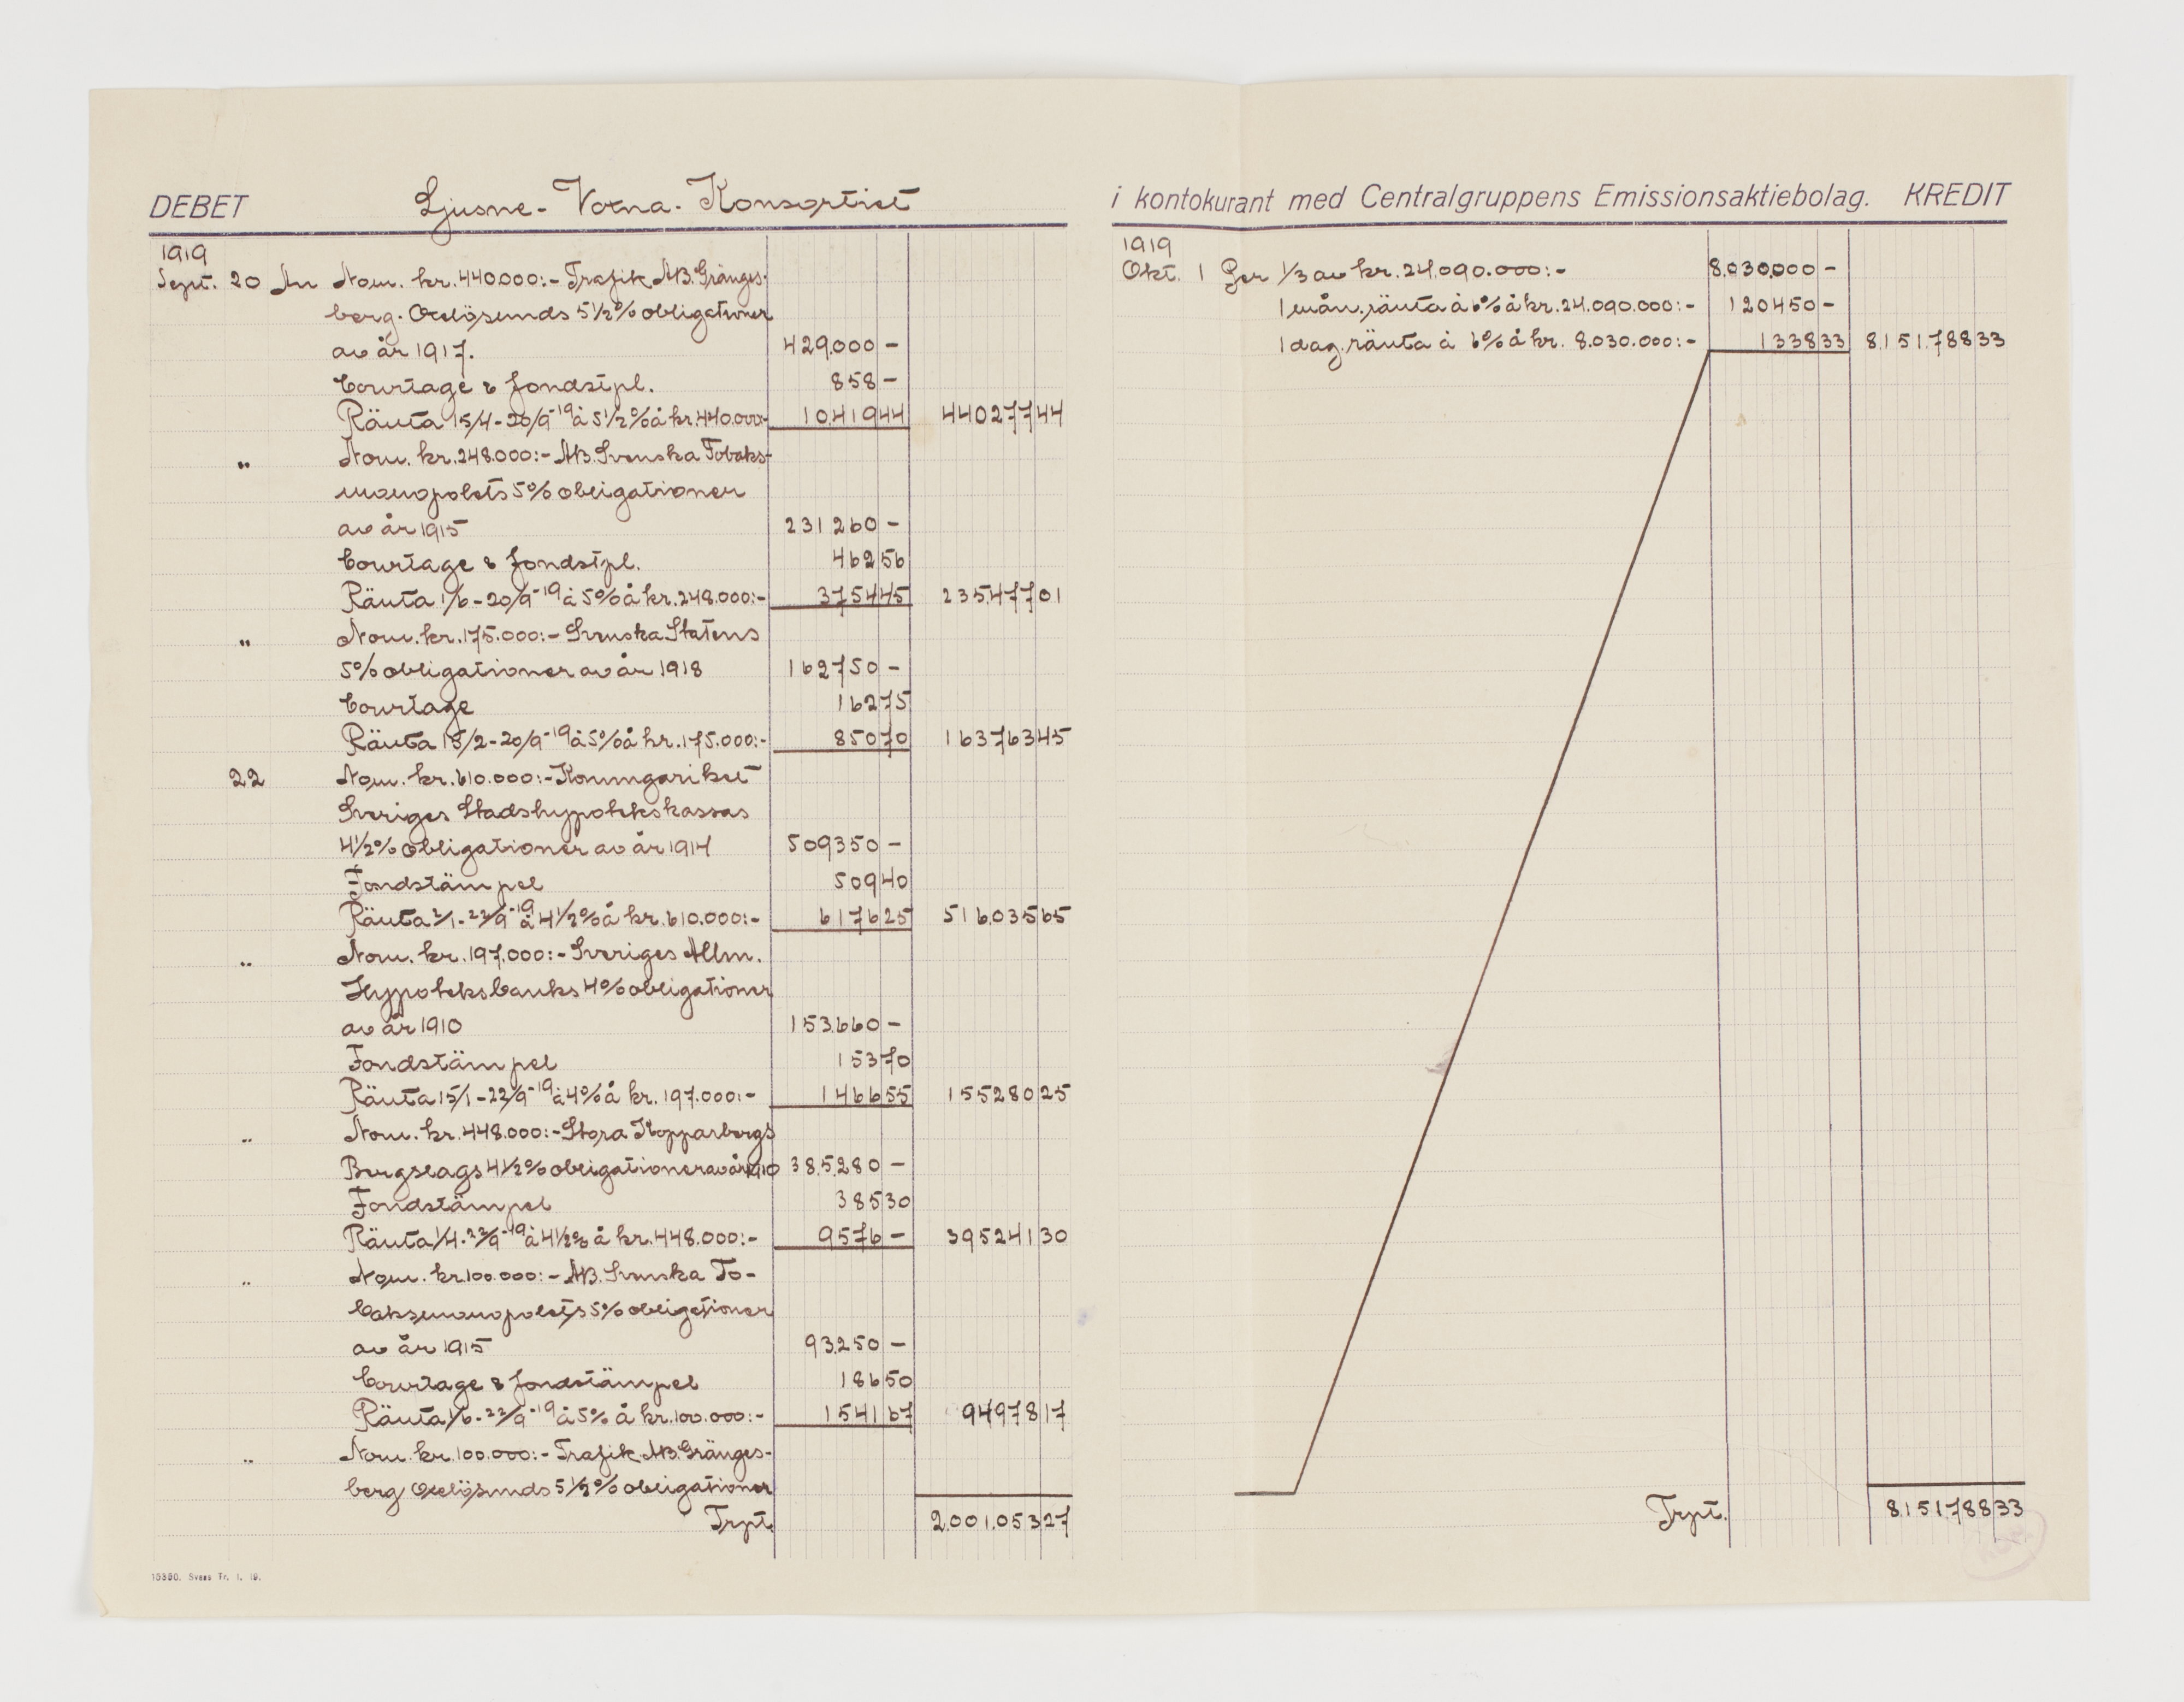 DEBET Ljusne-Voxna-Konsortiet
1919
Sept. 20 An Nom. kr. 440.000:- Trafik AB. Gränges-
berg-Oxelösunds 5 1/2 % obligationer
av år 1917. 429.000 -
Courtage & fondstpl. 858 -
Ränta 15/4-20/9-19 à 5 1/2 % å kr. 440.000:- 10.419 44 440.277 44
" Nom. kr. 248.000:- AB. Svenska Tobaks-
monopolets 5% obligationer
av år 1915 231260 -
Courtage & fondstpl. 462 56
Ränta 1/6-20/9-19 à 5% å kr. 248.000:- 3754 45 235.477 01
" Nom. kr. 175.000:- Svenska Statens
5% obligationer av år 1918 162750 -
Courtage 162 75
Ränta 15/2-20/9-19 à 5% å kr. 175.000:- 850 70 163763 45
22 Nom. kr. 610.000:- Konungariket
Sveriges Stadshypotekskassas
4 1/2 % obligationer av år 1914 509350 -
Fondstämpel 509 40
Ränta 2/1-22/9-19 à 4 1/2 % å kr. 610.000:- 6176 25 516.035 65
" Nom. kr. 197.000:- Sveriges Allm.
Hypoteksbanks 4% obligationer
av år 1910 153.660 -
Fondstämpel 153 70
Ränta 15/1-22/9-19 à 4% å kr. 197.000:- 1466 55 155280 25
" Nom. kr. 448.000:- Stora Kopparbergs
Bergslags 4 1/2 % obligationer av år 1910 385.280 -
Fondstämpel 385 30
Ränta 1/4-22/9-19 à 4 1/2 % å kr. 448.000:- 9576 - 395241 30
" Nom. kr. 100.000:- AB. Svenska To-
baksmonopolets 5% obligationer
av år 1915 93.250 -
Courtage & fondstämpel 186 50
Ränta 1/6-22/9-19 à 5% å kr. 100.000:- 1541 67 94978 17
" Nom. kr. 100.000:- Trafik AB. Gränges-
berg Oxelösunds 5 1/2 % obligationer
Trpt. 2.001.053 27
15350. Sveas Tr. 1. 19.
i kontokurant med Centralgruppens Emissionsaktiebolag. KREDIT
1919
Okt. 1 Per 1/3 av kr. 24.090.000:- 8.030.000 -
1 mån. ränta à 6% å kr. 24.090.000:- 120450 -
1 dag. ränta à 6% å kr. 8.030.000:- 1338 33 8.151.788 33
Trpt. 8.151.788 33